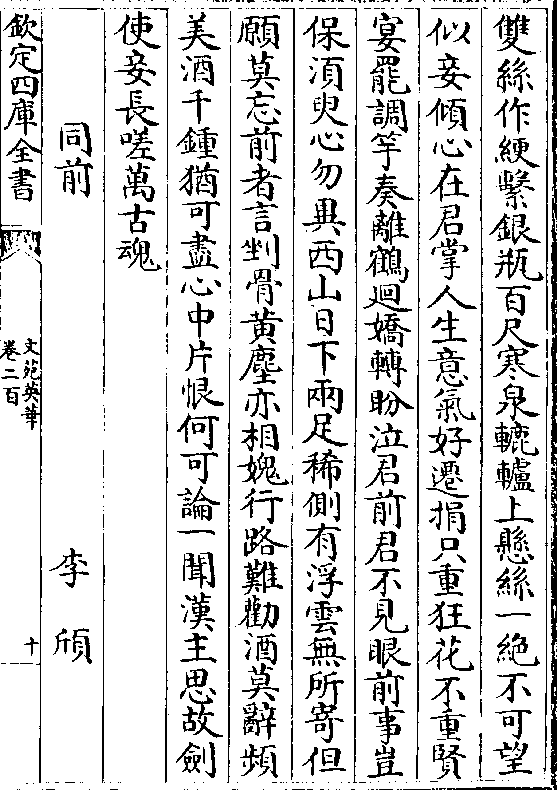 雙絲作綆繫銀瓶百尺寒泉轆轤上懸絲一絕不可望
似妾傾心在君掌人生意氣好遷捐只重狂花不重賢
宴罷調竽奏離鶴迴嬌轉盼泣君前君不見眼前事豈
保須臾心勿異西山日下兩足稀側有浮雲無所寄但
願莫忘前者言剉骨黃塵亦相媿行路難勸酒莫辭頻
美酒千鍾猶可盡心中片恨何可論一聞漢主思故劍
使妾長嗟萬古魂
同前　李頎
欽定四庫全書
文苑英華
卷二百
十